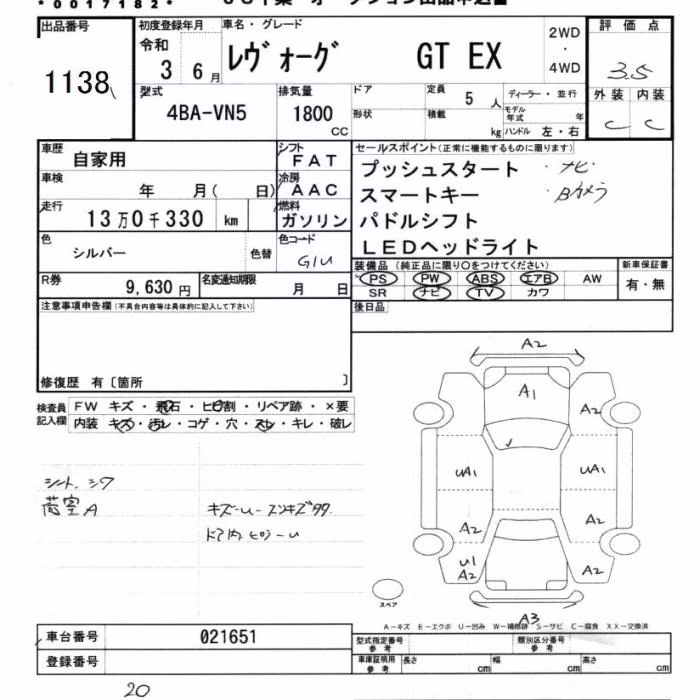 *0017182*
出品番号
1138
初度登録年月
令和
3 6月
車名・グレード
レヴォーグ GT EX
2WD
・
4WD
評価点
3.5
外装 内装
C C
型式
4BA-VN5
排気量
1800
CC
ドア
形状
定員 5 人
積載 kg
ディーラー・並行
モデル年式 年
ハンドル 左・右
車歴
自家用
シフト
FAT
車検
年 月( 日)
冷房
AAC
走行
13万0千330 km
燃料
ガソリン
色
シルバー
色替
色コード
G1U
R券
9,630円
名変通知期限
月 日
セールスポイント(正常に機能するものに限ります)
プッシュスタート ・ナビ
スマートキー ・Bカメラ
パドルシフト
LEDヘッドライト
装備品(純正品に限り〇をつけてください)
PS PW ABS エアB AW
SR ナビ TV カワ
新車保証書
有・無
後日品
注意事項申告欄(不具合内容等は具体的に記入して下さい)
修復歴 有〔箇所 〕
検査員
記入欄
FW キズ・飛石・ヒビ割・リペア跡・×要
内装 キズ・汚レ・コゲ・穴・スレ・キレ・破レ
シート、シワ
荷室A
キズ-U-スンキズ99
ドア内ヒョウ-U
A2
A1
A2
UA1
UA1
A2
A2
U1
A2
A2
A3
スペア
A-キズ E-エクボ U-凹み W-補修跡 S-サビ C-腐食 XX-交換済
車台番号
021651
登録番号
型式指定番号
参考
類別区分番号
参考
車庫証明用
参考
長さ cm
幅 cm
高さ cm
20